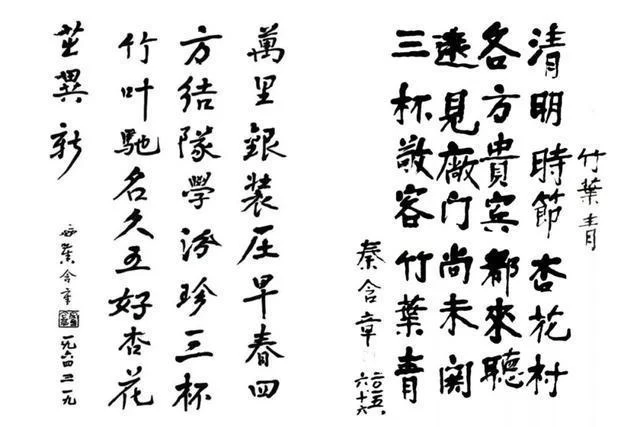 竹葉青
清明時節杏花村
各方貴賓都來聽
遠見廠门尚未関
三杯敬客竹葉青
秦含章
二〇〇五、
六、十六
萬里銀装压早春四
方结隊學汾珍三杯
竹叶馳名久五好杏花
異新
秦含章
一九六四三一九